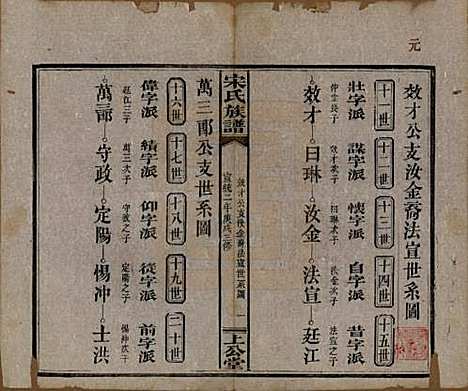 元
效才公支汝金裔法宣世系圖
十一世 十二世 十三世 十四世 十五世
壯字派 謀字派 懷字派 自字派 昔字派
仲堂長子 效才之子 日琳長子 汝金次子 法宣之子
效才 日琳 汝金 法宣 廷江
宋氏族譜
效才公支汝金裔法宣世系圖 一
宣統二年庚戌三修
上公堂
萬三郎公支世系圖
十六世 十七世 十八世 十九世 二十世
偉字派 績字派 仰字派 從字派 前字派
廷江三子 萬三次子 守政之子 定陽之子 惕沖次子
萬三郎 守政 定陽 惕沖 士洪